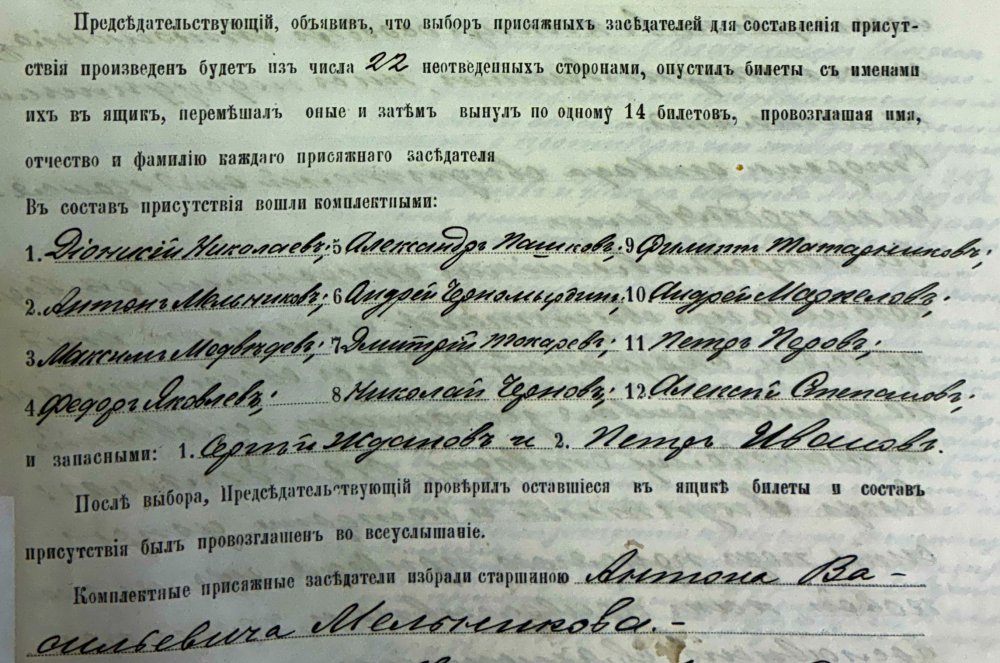 Предсѣдательствующій, объявивъ, что выборъ присяжныхъ засѣдателей для составленія присут-
ствія произведенъ будетъ изъ числа 22 неотведенныхъ сторонами, опустилъ билеты съ именами
ихъ въ ящикъ, перемѣшалъ оные и затѣмъ вынулъ по одному 14 билетовъ, провозглашая имя,
отчество и фамилію каждаго присяжнаго засѣдателя
Въ составъ присутствія вошли комплектными:
1. Діонисій Николаевъ; 5 Александръ Пашковъ; 9 Филиппъ Татарниковъ;
2. Антонъ Мельниковъ; 6 Андрей Черномырдинъ; 10 Андрей Маджеловъ;
3 Максимъ Медвѣдевъ; 7 Дмитрій Токаревъ; 11 Петръ Перовъ;
4 Федоръ Яковлевъ; 8 Николай Черновъ; 12 Алексѣй Степановъ;
и запасными: 1. Сергѣй Ждановъ и 2. Петръ Ивановъ.
Послѣ выбора, Предсѣдательствующій провѣрилъ оставшіеся въ ящикѣ билеты и составъ
присутствія былъ провозглашенъ во всеуслышаніе.
Комплектные присяжные засѣдатели избрали старшиною Антона Ва-
сильевича Мельникова. –